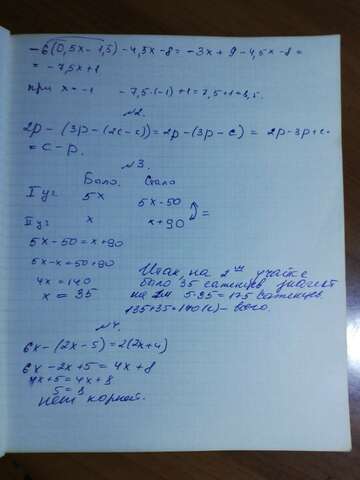 -6(0,5x-1,5)-4,5x-8=-3x+9-4,5x-8=
= -7,5x+1
при x=-1 -7,5·(-1)+1=7,5+1=8,5.
№2.
2p-(3p-(2c-c))=2p-(3p-c)= 2p-3p+c=
= c-p.
№3.
Было. Стало
I уч 5x 5x-50
II уч x x+90 =
5x-50=x+90
5x-x=50+90
4x=140
x=35
Итак, на 2ом участке
было 35 саженцев, значит
на 1м 5·35=175 саженцев
135+35=140(с)- всего.
№4.
6x-(2x-5)=2(2x+4)
6x-2x+5=4x+8
4x+5=4x+8
5=8
нет корней.